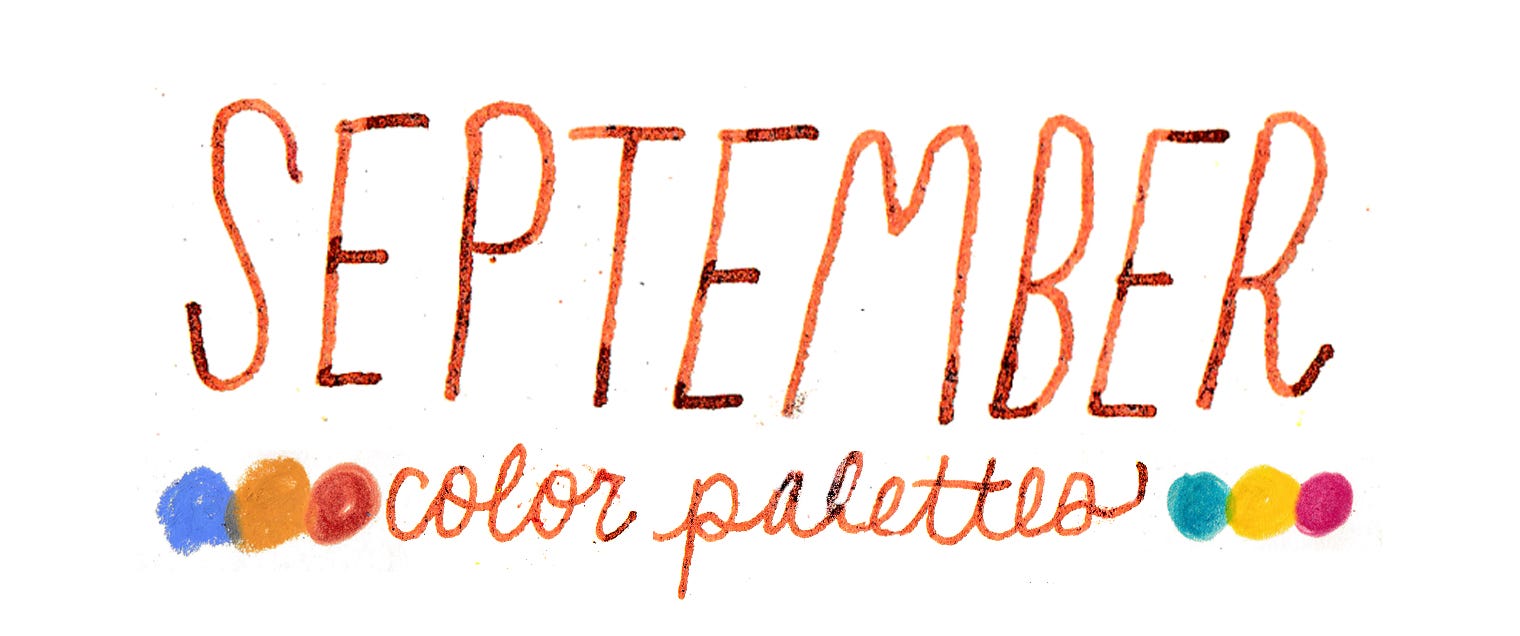 SEPTEMBER
color palettes